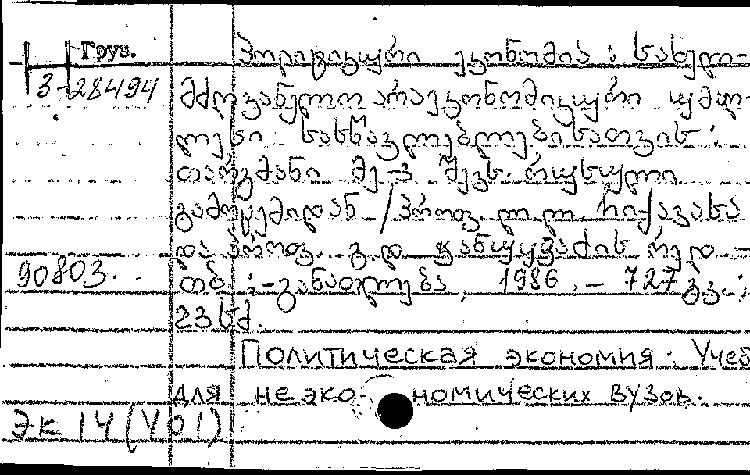 Груз.
პოლიტიკური ეკონომია : სახელ-
3-28494
მძღვანელო არაეკონომიკური უმაღ-
ლესი სასწავლებლებისათვის :
თარგმანი მე-3 შევს. რუსული
გამოცემიდან / პროფ.
და პროფ. რედ -
90803.
თბ. : - განათლება, 1986. - 727 გვ ;
23 სმ.
Политическая экономия: Учеб
для неэкономических вузов.
Эк 14(У01)